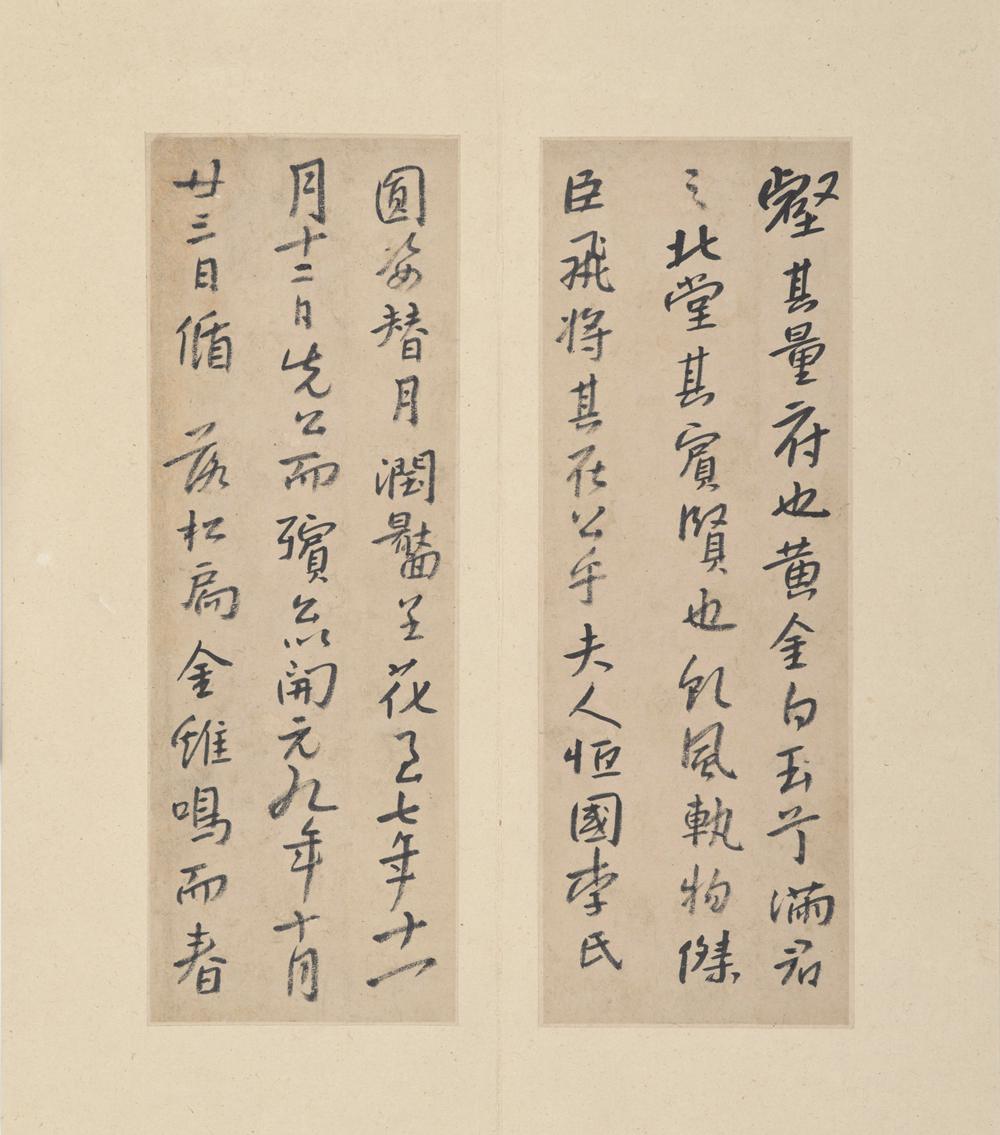 壑其量府也黄金白玉兮滿君
之北堂其賓賢也飲風執物傑
臣飛將其在公乎夫人恒國李氏
圓姿替月潤呈花七年十一
月十二日先公而殯開元九年十月
廿三日循落松扃金雉鳴而春